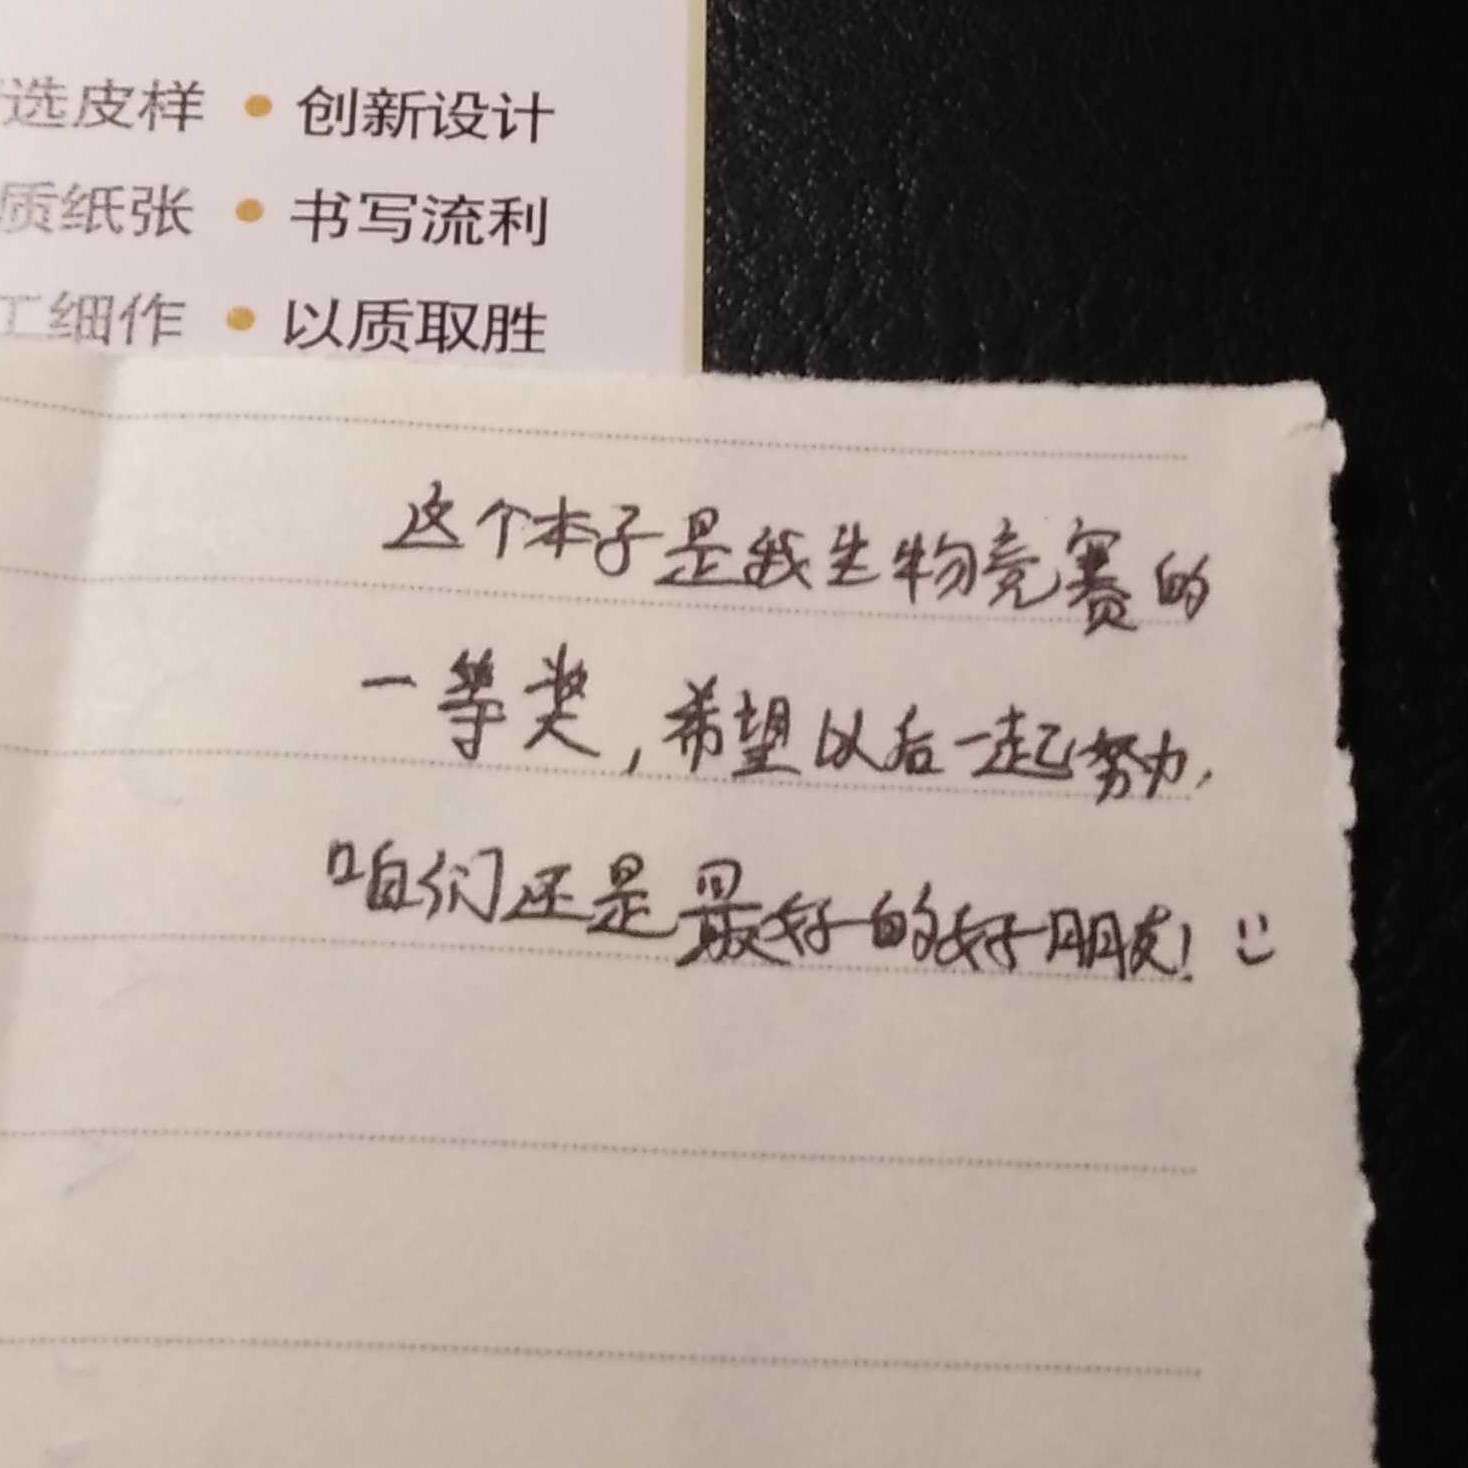 选皮样 • 创新设计
质纸张 • 书写流利
工细作 • 以质取胜
这个本子是我生物竞赛的
一等奖,希望以后一起努力,
咱们还是最好的好朋友!